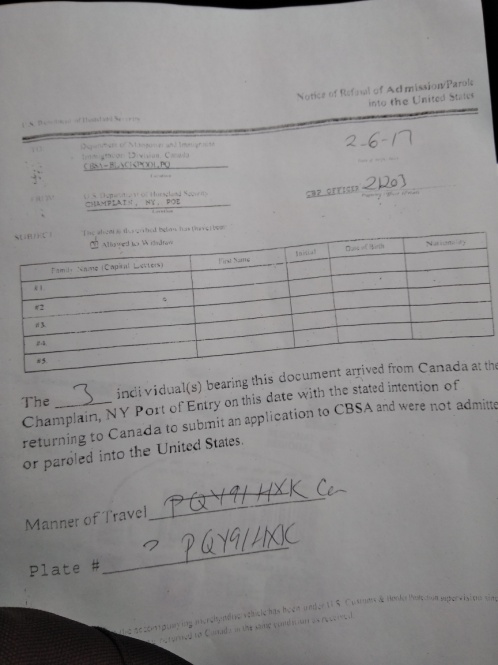 Notice of Refusal of Admission/Parole
into the United States
U.S. Department of Homeland Security
2-6-17
TO:
Department of Manpower and Immigration
Immigration Division, Canada
CBSA-BLACKPOOL, PQ
Location
FROM:
U.S. Department of Homeland Security
CHAMPLAIN, NY, POE
Location
CBP OFFICER
SUBJECT:
The alien(s) described below has (have) been:
Allowed to Withdraw
Family Name (Capital Letters) First Name Initial Date of Birth Nationality
#1
#2
#3
#4
#5
The 3 individual(s) bearing this document arrived from Canada at the
Champlain, NY Port of Entry on this date with the stated intention of
returning to Canada to submit an application to CBSA and were not admitte
or paroled into the United States.
Manner of Travel
Plate # PQY91HXK
the accompanying merchandise vehicle has been under U.S. Customs & Border Protection supervision
returned to Canada in the same condition as received.